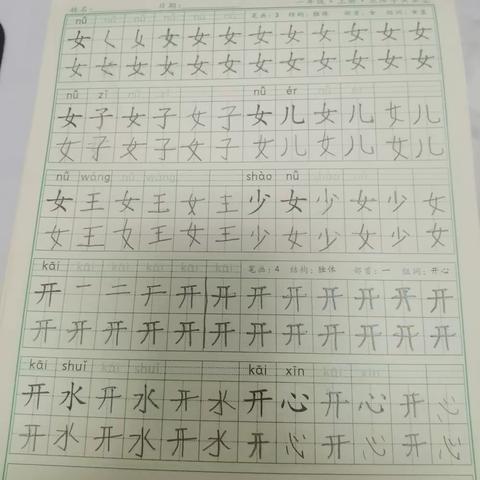 姓名： 日期： 一年级·上册
nǚ 笔画：3 结构：独体 部首：女 组词：女
女 く 女 女 女 女 女 女 女 女 女
女 女 女 女 女 女 女 女 女 女 女 女
nǚ zǐ nǚ ér
女 子 女 子 女 子 女 儿 女 儿 女 儿
女 子 女 子 女 子 女 儿 女 儿 女 儿
nǚ wáng nǚ wáng shào nǚ shào nǚ
女 王 女 王 女 王 少 女 少 女 少 女
女 王 女 王 女 王 少 女 少 女 少 女
kāi kāi kāi kāi kāi kāi 笔画：4 结构：独体 部首：一 组词：开心
开 一 二 开 开 开 开 开 开 开 开 开
开 开 开 开 开 开 开 开 开 开 开 开
kāi shuǐ kāi shuǐ kāi xīn kāi xīn
开 水 开 水 开 水 开 心 开 心 开 心
开 水 开 水 开 水 开 心 开 心 开 心